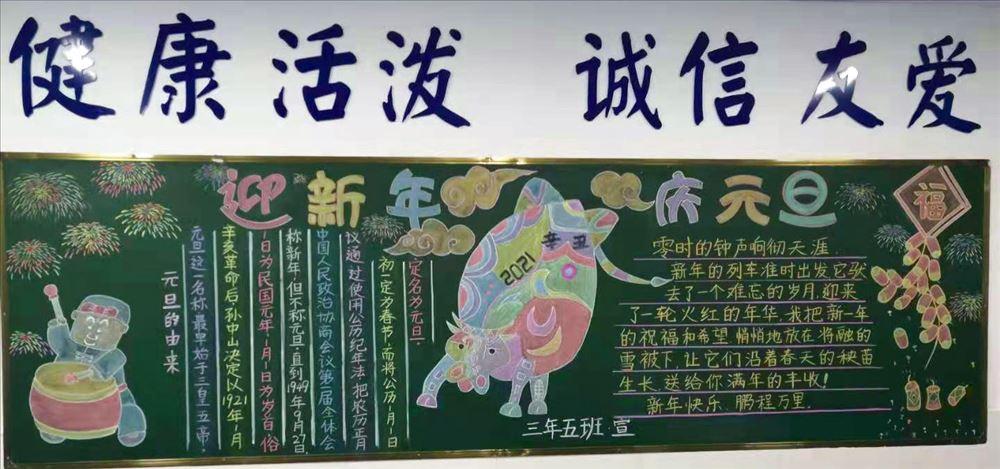 健康活泼 诚信友爱
迎新年
庆元旦
福
元旦的由来
元旦这一名称,最早始于三皇五帝,
辛亥革命后,孙中山决定以1921年1月
1日为民国元年1月1日为岁首俗
称新年,但不称元旦,直到1949年9月27日,
中国人民政治协商会议第一届全体会
议通过使用公历纪年法,把农历正月
初一定为春节,而将公历1月1日
定名为元旦.
2021
辛丑
零时的钟声响彻天涯
新年的列车准时出发它驮
去了一个难忘的岁月,迎来
了一轮火红的年华,我把新一年
的祝福和希望 悄悄地放在将融的
雪被下,让它们沿着春天的秧苗
生长,送给你满年的丰收!
新年快乐、鹏程万里.
三年五班 宣